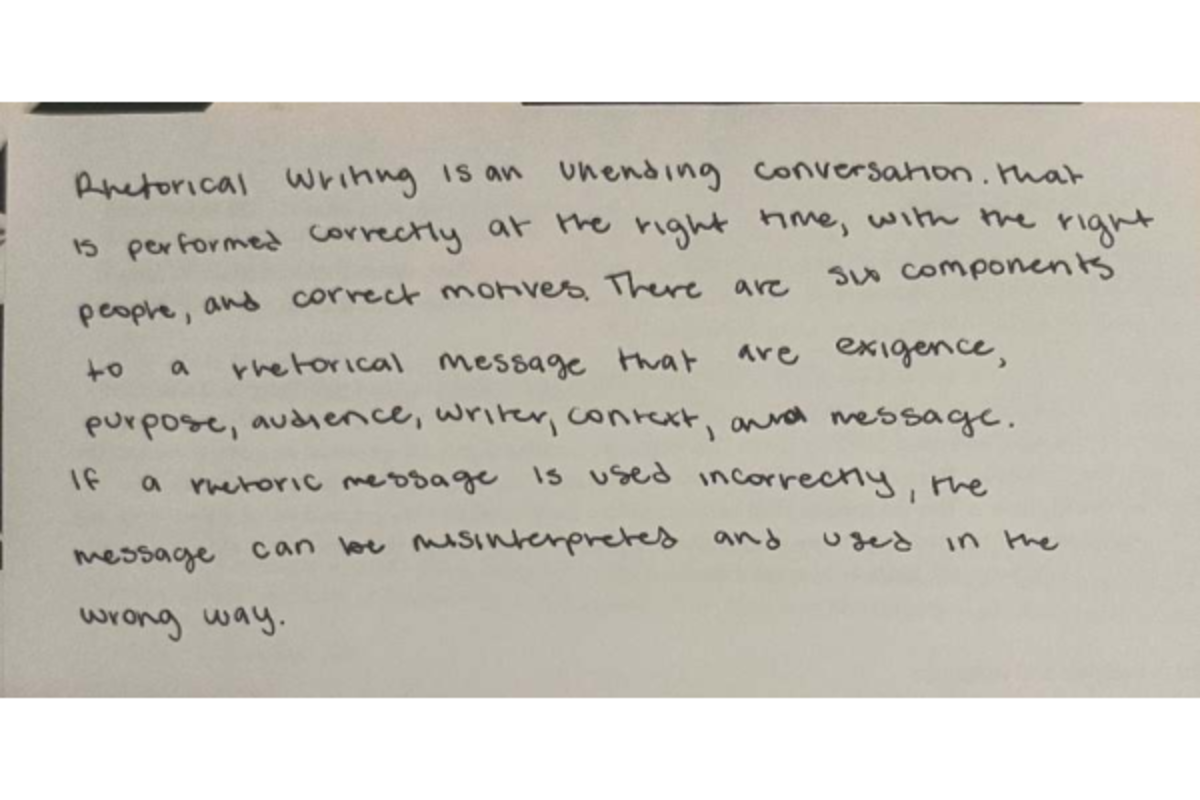 Rhetorical Writing is an unending conversation. that
is performed correctly at the right time, with the right
people, and correct motives. There are six components
to a rhetorical message that are exigence,
purpose, audience, writer, context, and message.
If a rhetoric message is used incorrectly, the
message can be misinterpreted and used in the
wrong way.